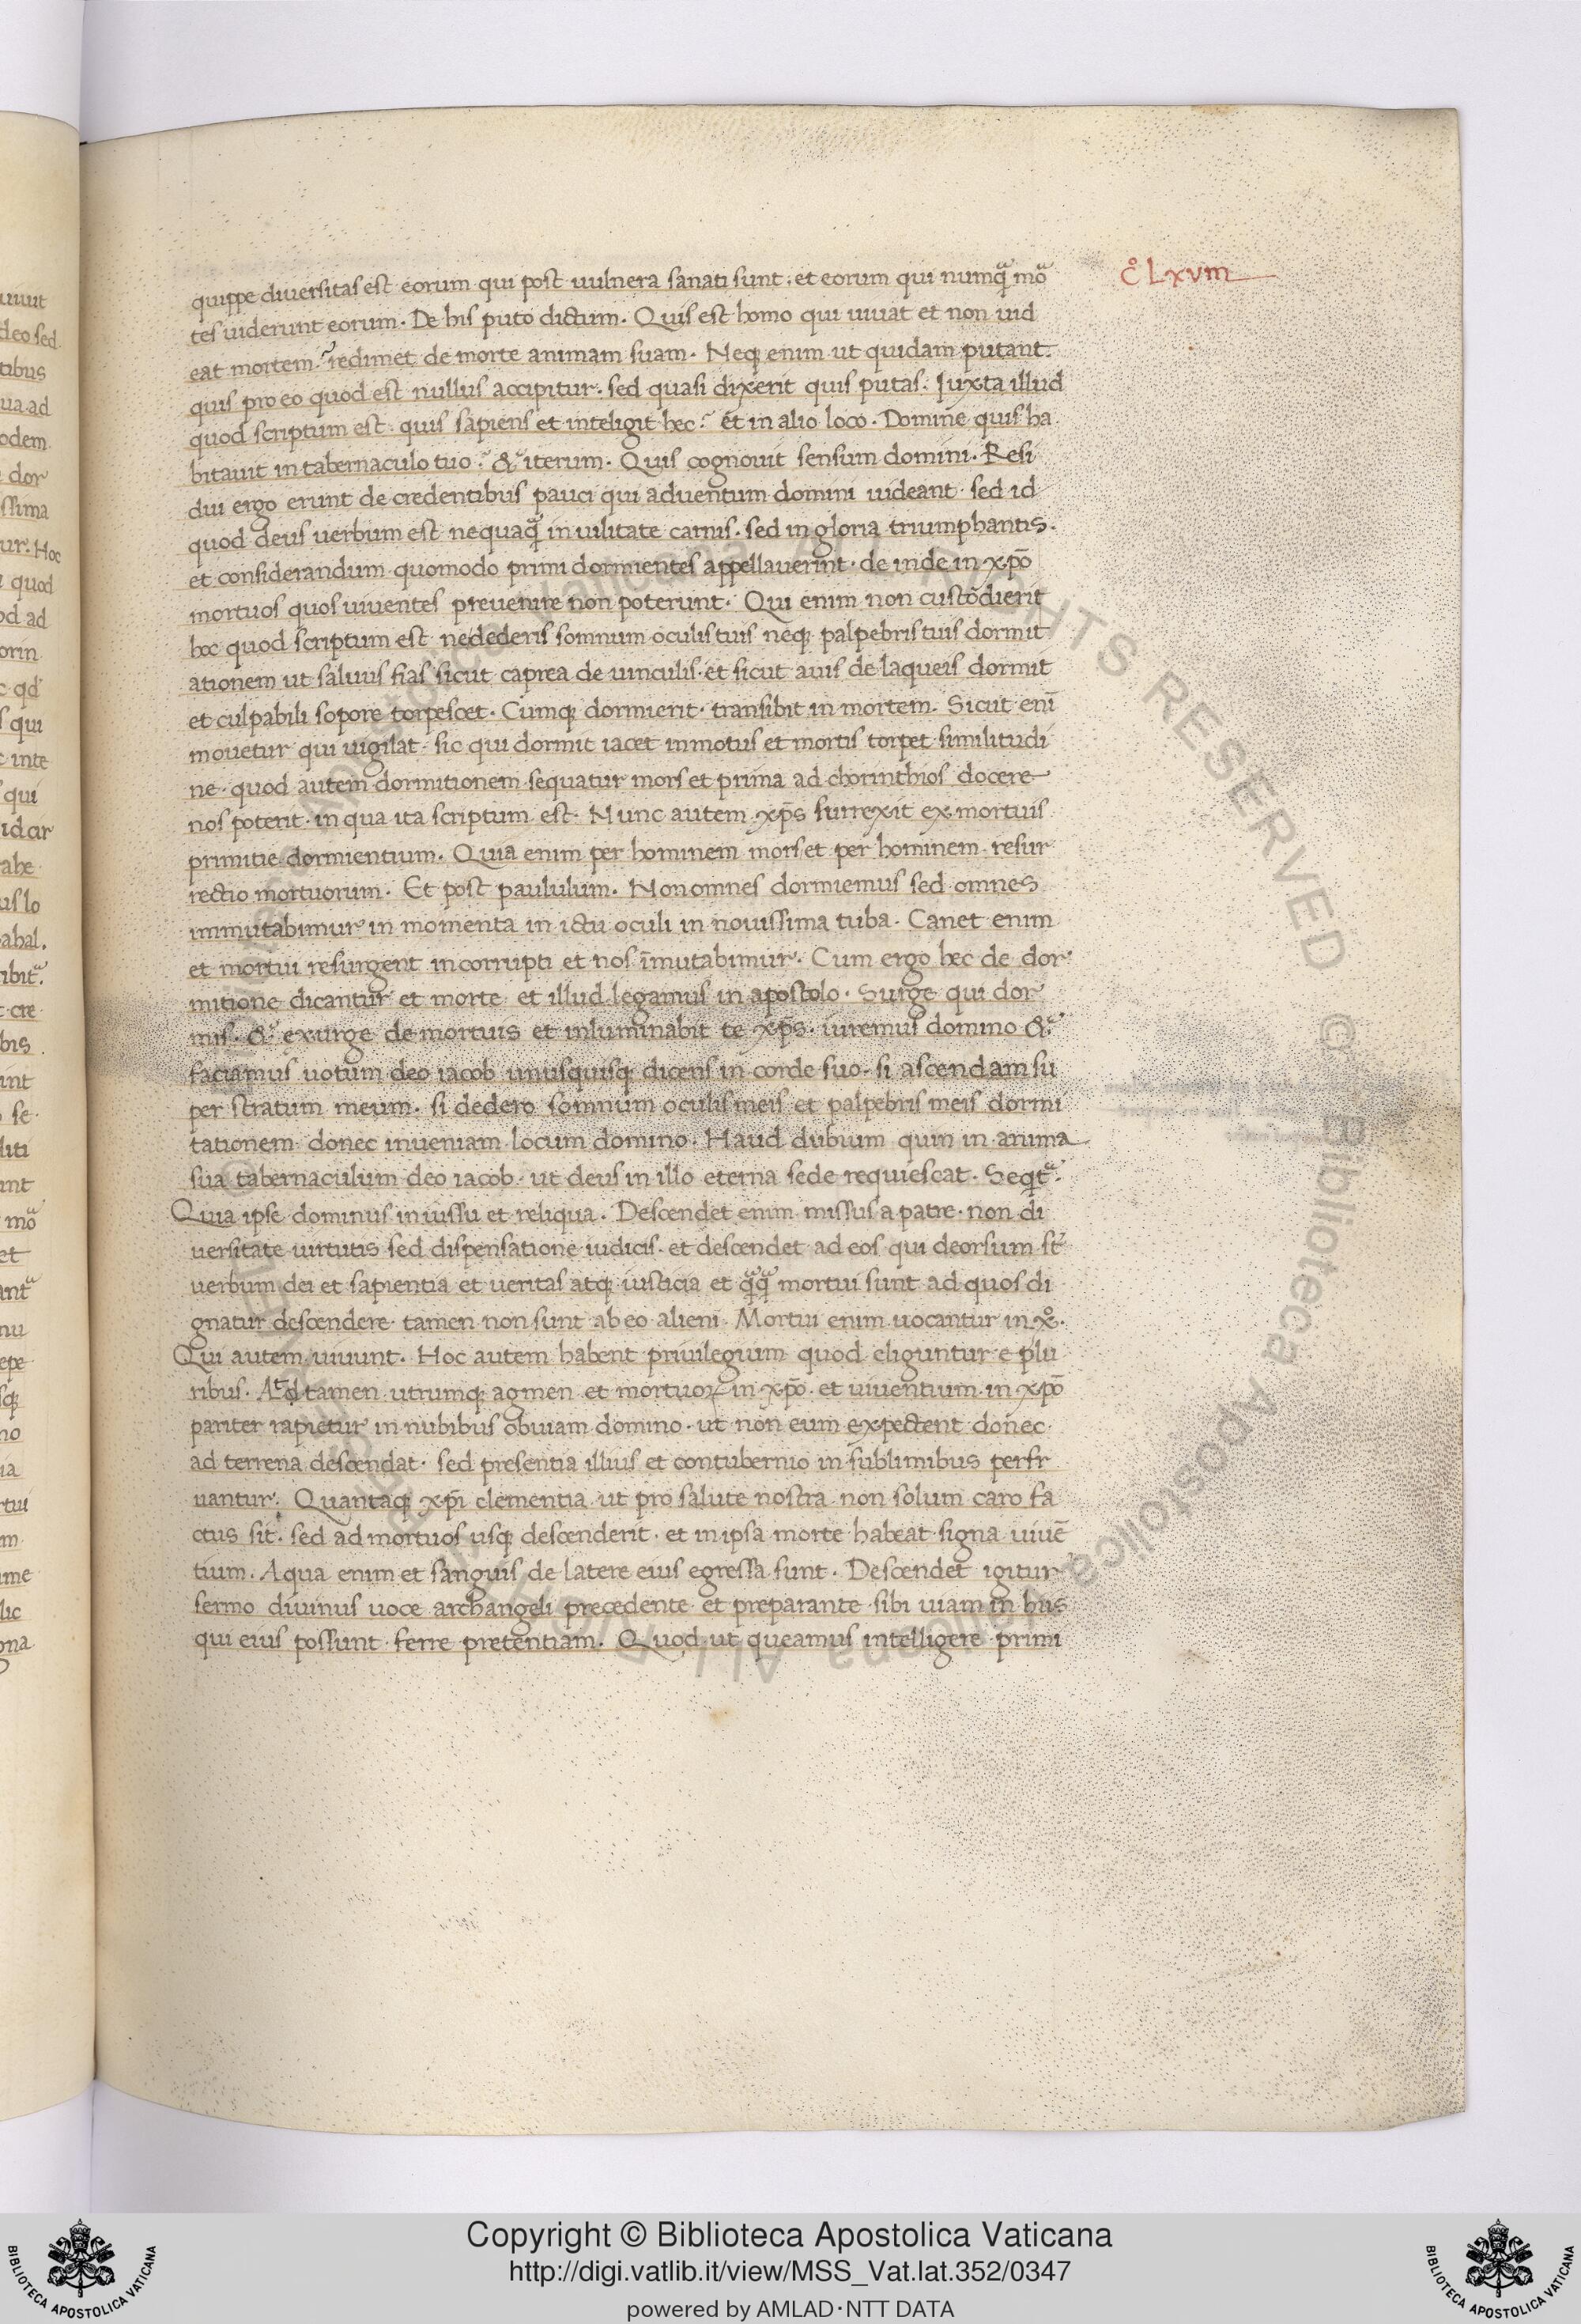 quippe diuersitas est eorum qui post uulnera sanati sunt. et eorum qui numqͣ mo᷑
tes uiderunt eorum. De his puto dictum. Quis est homo qui uiuat et non uid
eat mortem? redimet de morte animam suam. Neq; enim ut quidam putant.
quis pro eo quod est nullus accipitur. sed quasi dixerit quis putas. Iuxta illud
quod scriptum est. quis sapiens et inteligit hec? et in alio loco. Domine quis ha
bitauit in tabernaculo tuo? & iterum. Quis cognouit sensum domini. Resi
dui ergo erunt de credentibus pauci qui aduentum domini uideant. sed id
quod deus uerbum est nequaqͣ in uilitate carnis. sed in gloria triumphantis.
et considerandum quomodo primi dormientes appellauerint. de inde in xp̄o
mortuos quos uiuentes preuenire non poterunt. Qui enim non custodierit
hoc quod scriptum est nedederis somnum oculis tuis neq; palpebris tuis dormit
ationem ut saluus fias sicut caprea de uinculis. et sicut auis de laqueis dormit
et culpabili sopore torpescet. Cumq; dormierit. transibit in mortem. Sicut eni̅
mouetur qui uigilat. sic qui dormit iacet inmotus et mortis torpet similitudi
ne. quod autem dormitionem sequatur mors et prima ad chorinthios docere
nos poterit. in qua ita scriptum est. Nunc autem xp̄s surrexit ex mortuis
primitie dormientium. Quia enim per hominem mors et per hominem resur
rectio mortuorum. Et post paululum. Non omnes dormiemus sed omnes
immutabimur in momenta in ictu oculi in nouissima tuba. Canet enim
et mortui resurgent incorrupti et nos i̅mutabimur. Cum ergo hec de dor
mitione dicantur et morte et illud legamus in apostolo. Surge qui dor
mis. & exurge de mortuis et inluminabit te xp̄s. iuremus domino &
faciamus uotum deo iacob unusquisq; dicens in corde suo. si ascendam su
per stratum meum. si dedero somnum oculis meis et palpebris meis dormi
tationem donec inueniam locum domino. Haud dubium quin in anima
sua tabernaculum deo iacob. ut deus in illo eterna sede requiescat. Seqͥtᷣ.
Quia ipse dominus in iussu et reliqua. Descendet enim missus a patre. non di
uersitate uirtutis sed dispensatione iudicis. et descendet ad eos qui deorsum st̄
uerbum dei et sapientia et ueritas atq; iusticia et qͣqͣ mortui sunt ad quos di
gnatur descendere. tamen non sunt ab eo alieni. Mortui enim uocantur in xͦ.
Qui autem uiuunt. Hoc autem habent priuilegium quod eliguntur e plu
ribus. Atd tamen utrumq; agmen et mortuoꝝ in xp̄o. et uiuentium in xp̄o
pariter rapietur in nubibus obuiam domino. ut non eum expectent donec
ad terrena descendat. sed presentia illius et contubernio in sublimibus perfr
uantur. Quantaq; xp̄i clementia ut pro salute nostra non solum caro fa
ctus sit. sed ad mortuos usq; descenderit. et in ipsa morte habeat signa uiue̅
tium. Aqua enim et sanguis de latere eius egressa sunt. Descendet igitur
sermo diuinus uoce archangeli precedente et preparante sibi uiam in his
qui eius possunt ferre pretentiam. Quod ut queamus intelligere primi
c̊ Lxvm
Copyright © Biblioteca Apostolica Vaticana
http://digi.vatlib.it/view/MSS_Vat.lat.352/0347
powered by AMLAD·NTT DATA
BIBLIOTECA APOSTOLICA VATICANA
BIBLIOTECA APOSTOLICA VATICANA